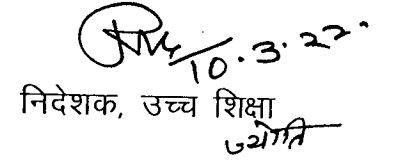 10.3.22.
निदेशक, उच्च शिक्षा
ज्योति